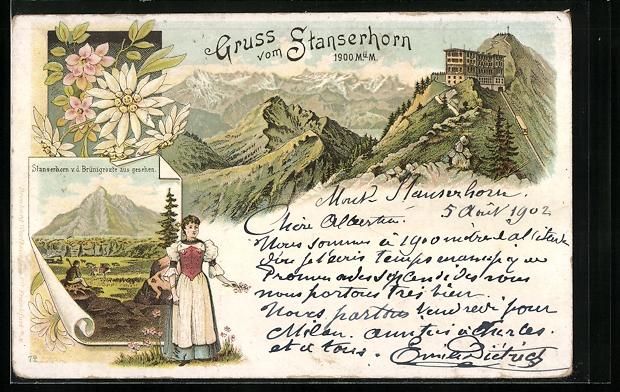 Gruss
vom Stanserhorn
1900 M.ü.M.
Stanserhorn v. d. Brünigroute aus gesehen.
Mont Stanserhorn.
5 Août 1902
Chère Alberta.
Nous sommes à 1900 mètres d'altitude
temps
Promenades splendides nous
nous portons très bien.
Nous partons vendredi pour
Milan. amitiés à Charles.
et à tous. Emilie Dietrich
72